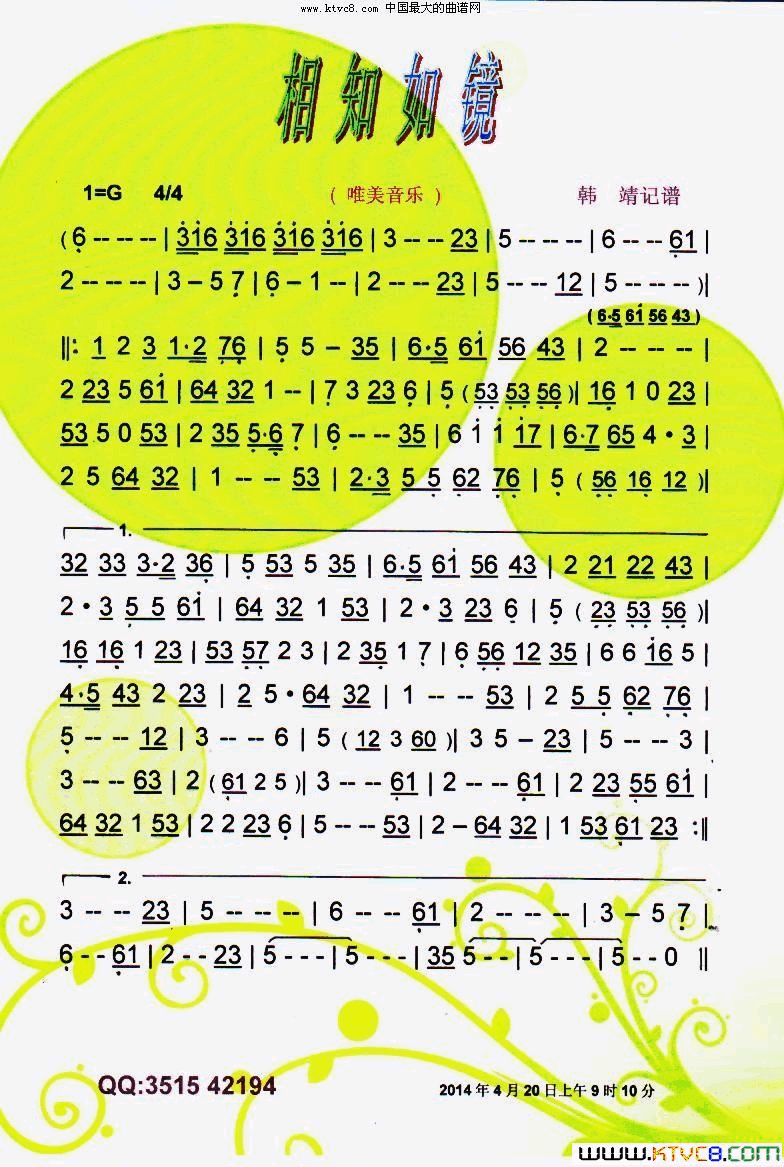 www.ktvc8.com 中国最大的曲谱网
相知如镜
1=G 4/4 ( 唯美音乐 ) 韩 靖记谱
( 6 - - - - | 3i6 3i6 3i6 3i6 | 3 - - - 23 | 5 - - - - | 6 - - - 61 |
2 - - - - | 3 – 5 7 | 6 – 1 - - | 2 - - - 23 | 5 - - - 12 | 5 - - - - )|
( 6·5 6i 56 43 )
||: 1 2 3 1·2 76 | 5 5 – 35 | 6·5 6i 56 43 | 2 - - - - |
2 23 5 6i | 64 32 1 - - | 7 3 23 6 | 5 ( 53 53 56 )| 16 1 0 23 |
53 5 0 53 | 2 35 5·6 7 | 6 - - - 35 | 6 i i i7 | 6·7 65 4 · 3 |
2 5 64 32 | 1 - - - 53 | 2·3 5 5 62 76 | 5 ( 56 16 12 )|
1.
32 33 3·2 36 | 5 53 5 35 | 6·5 6i 56 43 | 2 21 22 43 |
2 · 3 5 5 6i | 64 32 1 53 | 2 · 3 23 6 | 5 ( 23 53 56 )|
16 16 1 23 | 53 57 2 3 | 2 35 1 7 | 6 56 12 35 | 6 6 i6 5 |
4·5 43 2 23 | 2 5 · 64 32 | 1 - - - 53 | 2 5 5 62 76 |
5 - - - 12 | 3 - - - 6 | 5 ( 12 3 60 )| 3 5 – 23 | 5 - - - 3 |
3 - - - 63 | 2 ( 61 2 5 )| 3 - - - 61 | 2 - - - 61 | 2 23 55 6i |
64 32 1 53 | 2 2 23 6 | 5 - - - 53 | 2 – 64 32 | 1 53 61 23 :||
2.
3 - - - 23 | 5 - - - - | 6 - - - 61 | 2 - - - - | 3 – 5 7 |
6 - - 61 | 2 - - 23 | 5 - - - | 5 - - - | 35 5 - - | 5 - - - | 5 - - 0 ||
QQ:3515 42194
2014 年 4 月 20 日上午 9 时 10 分
www.KTVC8.com